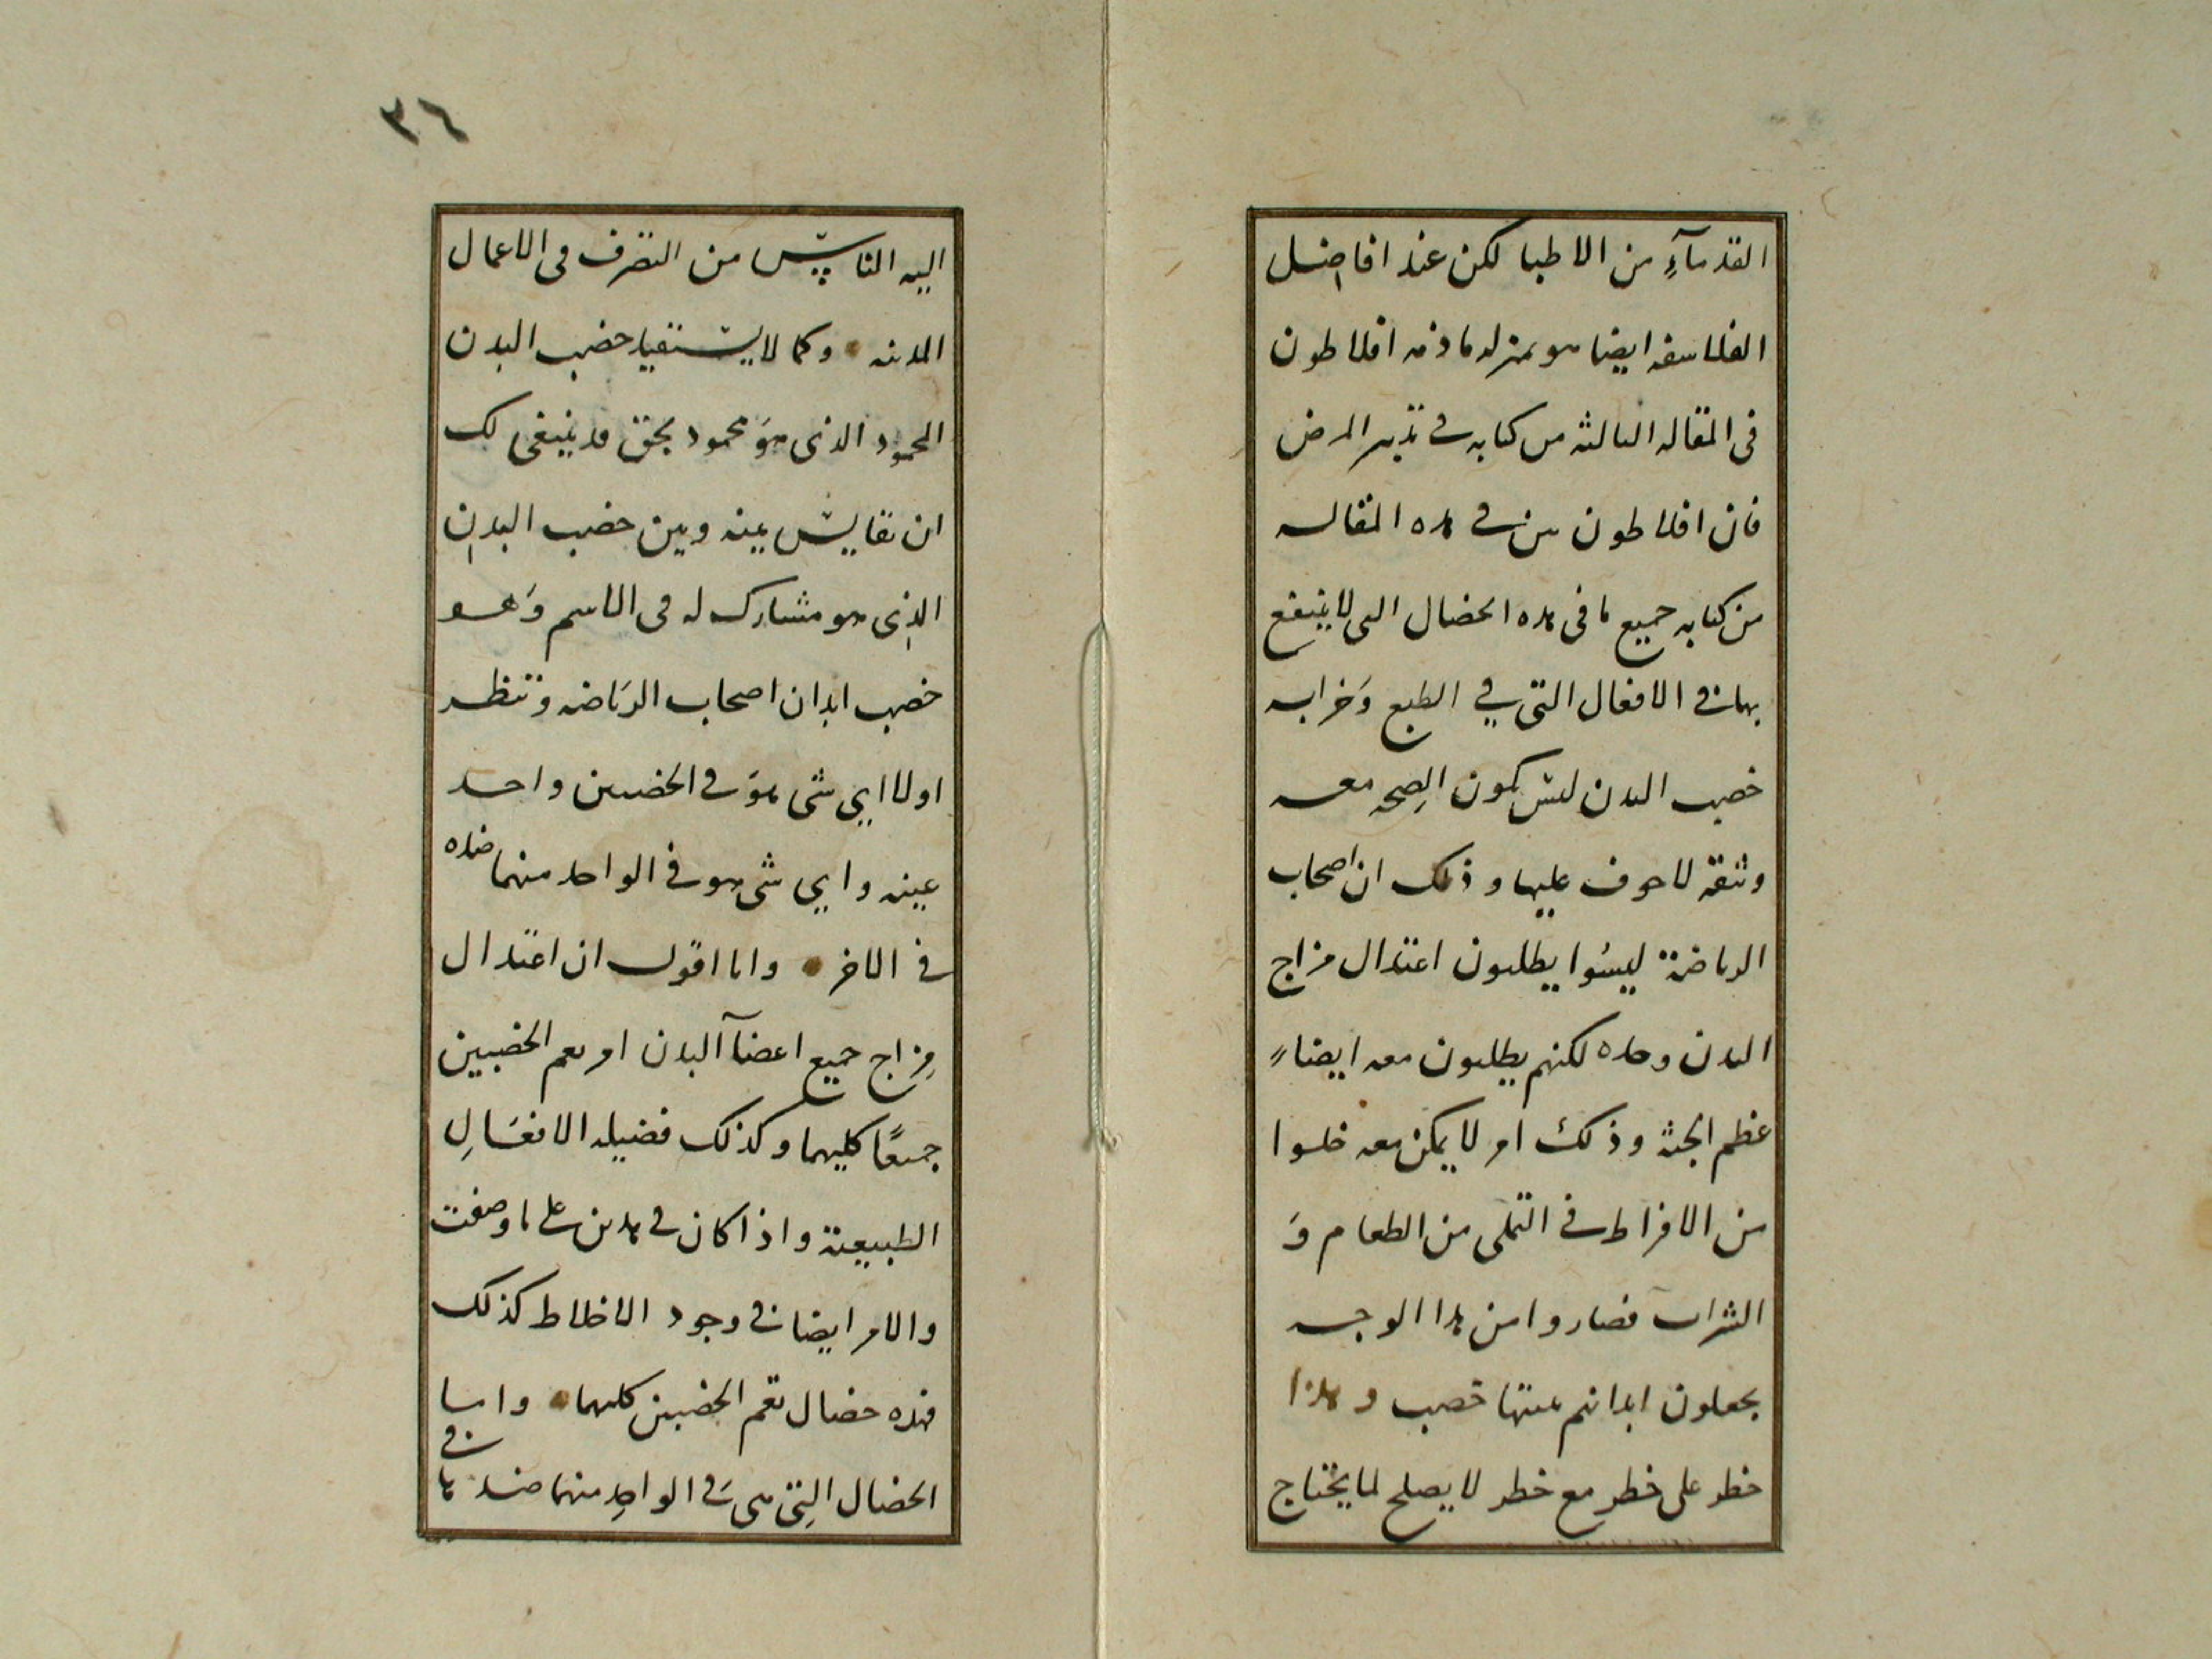 القدمآءِ من الاطبا لكن عند افاضل
الفلاسفه ايضا هو بمنزله ما ذمه افلاطون
فى المقاله الثالثه من كتابه فى تدبير المرض
فان افلاطون بين فى هذه المقاله
من كتابه جميع ما فى هذه الخصال التى لا ينتفع
بها فى الافعال التى فى الطبع وَخرابه
خصب البدن ليس تكون الصِحه معه
وثيقة لا خوف عليها و ذلك ان اصحاب
الرياضة ليسُوا يطلبون اعتدال مزاج
البدن وحده لكنهم يطلبون معه ايضاً
عظم الجثه وذلك امر لا يمكن معه خلوا
من الافراط فى التملى من الطعام وَ
الشراب فصاروا من هذا الوجه
يجعلون ابدانهم خصب و هذا
خطر على خطر مع خطر لا يصلح لما يحتاج
٣٦
اليه الناس من التصرف فى الاعمال
المدنيه وكما لا يستفيد خصب البدن
المحمود الذى هوَ محمود بحق قد ينبغى لك
ان تقايس بينه وبين خصب البدن
الذِى هو مشارك له فى الاسم وَهو
خصب ابدان اصحاب الرَياضه وتنظر
اولا اى شى هوَ فى الخصبين واحد
بعينه واى شى هو فى الواحد منهما ضده
فى الاخر وانا اقول ان اعتدال
مِزاج جميع اعضآ البدن امر يعم الخصبين
جميعًا كليهما وكذلك فضيله الافعَالِ
الطبيعية واذا كان فى هذين على ما وصفت
والامر ايضا فى وجود الاخلاط كذلك
فهذه خصال تعم الخصبين كليهما واما
الخصال التِى هى فَى الواحِد منهما ضد ما فى